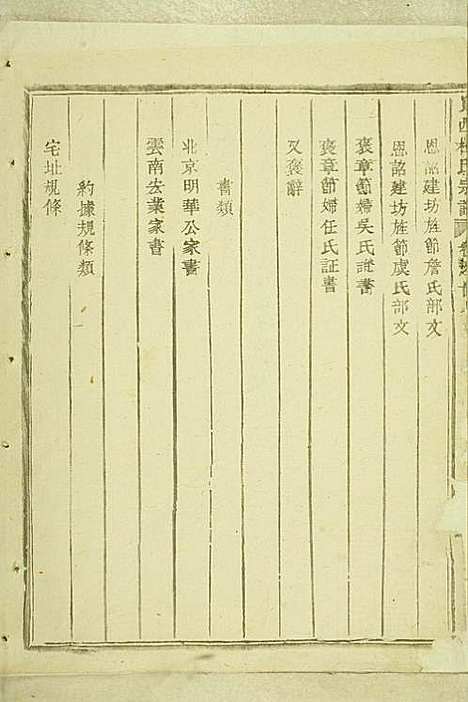 西 氏宗譜 卷
恩詔建坊旌節詹氏部文
恩詔建坊旌節虞氏部文
褒章節婦吳氏證書
褒章節婦任氏証書
又褒辭
書類
北京明華公家書
雲南玄業家書
約據規條類
宅址規條